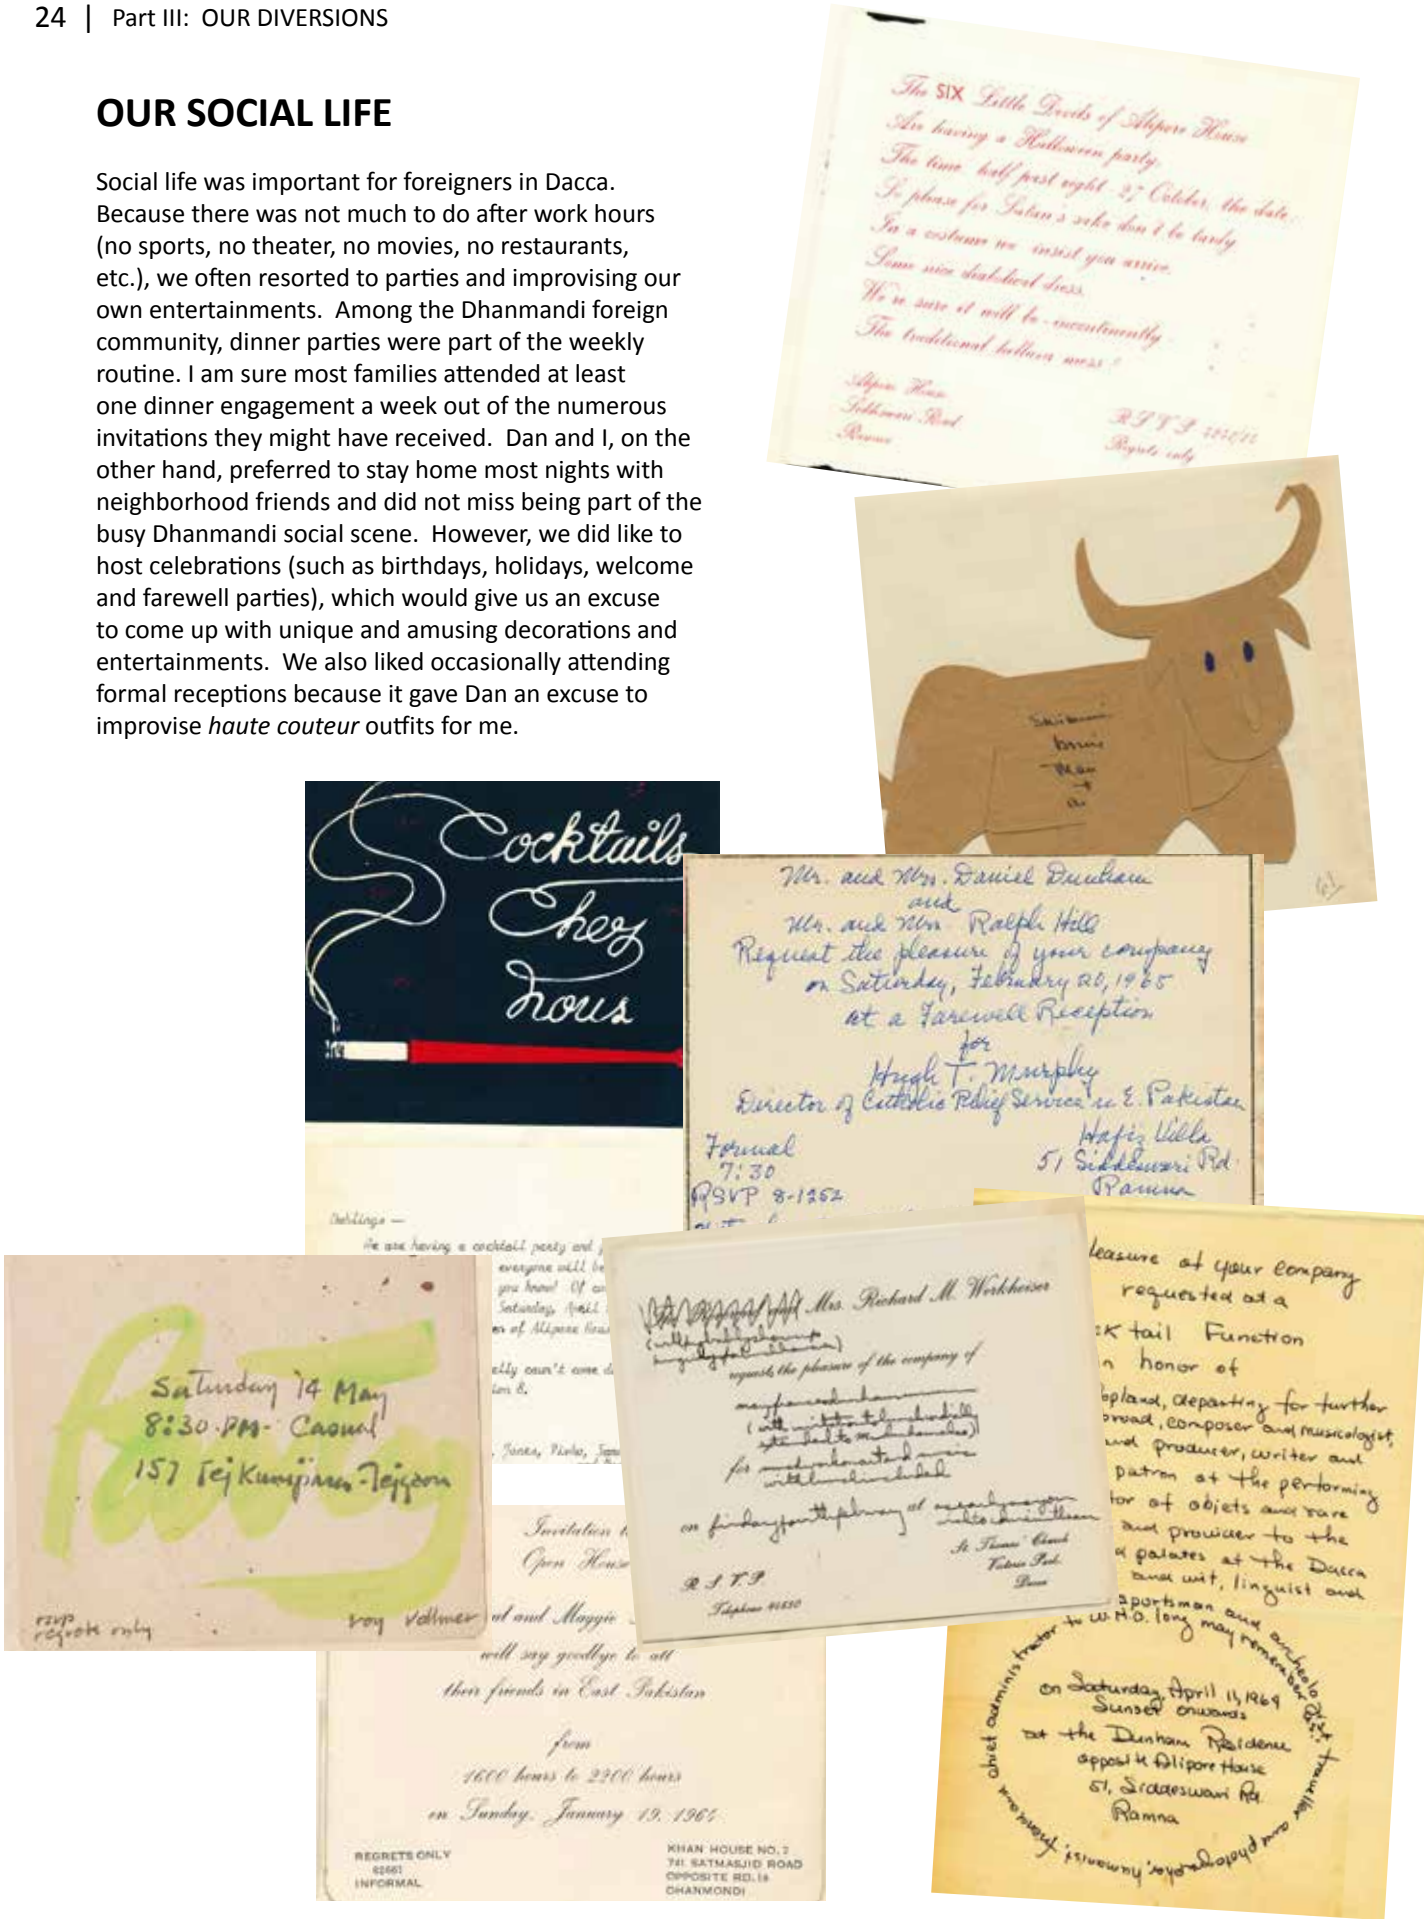 24 | Part III: OUR DIVERSIONS
OUR SOCIAL LIFE
Social life was important for foreigners in Dacca.
Because there was not much to do after work hours
(no sports, no theater, no movies, no restaurants,
etc.), we often resorted to parties and improvising our
own entertainments. Among the Dhanmandi foreign
community, dinner parties were part of the weekly
routine. I am sure most families attended at least
one dinner engagement a week out of the numerous
invitations they might have received. Dan and I, on the
other hand, preferred to stay home most nights with
neighborhood friends and did not miss being part of the
busy Dhanmandi social scene. However, we did like to
host celebrations (such as birthdays, holidays, welcome
and farewell parties), which would give us an excuse
to come up with unique and amusing decorations and
entertainments. We also liked occasionally attending
formal receptions because it gave Dan an excuse to
improvise haute couteur outfits for me.
The SIX Little Devils of Alipore House
Are having a Halloween party.
The time half past eight 27 October, the date.
So please for Satan's sake don't be tardy.
In a costume we insist you arrive.
Some nice diabolical dress.
We're sure it will be - incontinently
The traditional hellava mess!
Alipore House
Siddheswari Road
Ramna
R.S.V.P.
Regrets only
Cocktails
Chez
nous
Mr. and Mrs. Daniel Dunham
and
Mr. and Mrs Ralph Hill
Request the pleasure of your company
on Saturday, February 20, 1965
at a Farewell Reception
for
Hugh T. Murphy
Director of Catholic Relief Service in E. Pakistan
Formal
7:30
RSVP 8-1252
Hafiz Villa
51 Siddeswari Rd.
Ramna
Greetings —
We are having a cocktail party and
everyone will be
you know! Of
Saturday, April
of Alipore
can't come
Party
Saturday 14 May
8:30 PM - Casual
157 Tejkunipara - Tejgaon
rsvp
regrets only
roy vollmer
Mrs. Richard M. Workheiser
requests the pleasure of the company of
for
on
at
R.S.V.P.
Telephone
St. Thomas' Church
Victoria Park
Dacca
Invitation
Open House
and Maggie
will say goodbye to all
their friends in East Pakistan
from
1600 hours to 2200 hours
on Sunday, January 19, 1964
REGRETS ONLY
INFORMAL
KHAN HOUSE NO. 2
741 SATMASJID ROAD
OPPOSITE RD. 16
DHANMONDI
leasure of your company
requested at a
tail Function
honor of
opland, departing for further
broad, composer and musicologist,
and producer, writer and
patron of the performing
tor of objets and rare
and provider to the
palates at the Dacca
and wit, linguist and
sportsman and archeologist, traveller and photographer, humanist, friend and chief administrator to W.H.O. long may remember
on Saturday, April 11, 1964
Sunset onwards
at the Dunham Residence
opposite Alipore House
51, Siddeswari Rd.
Ramna